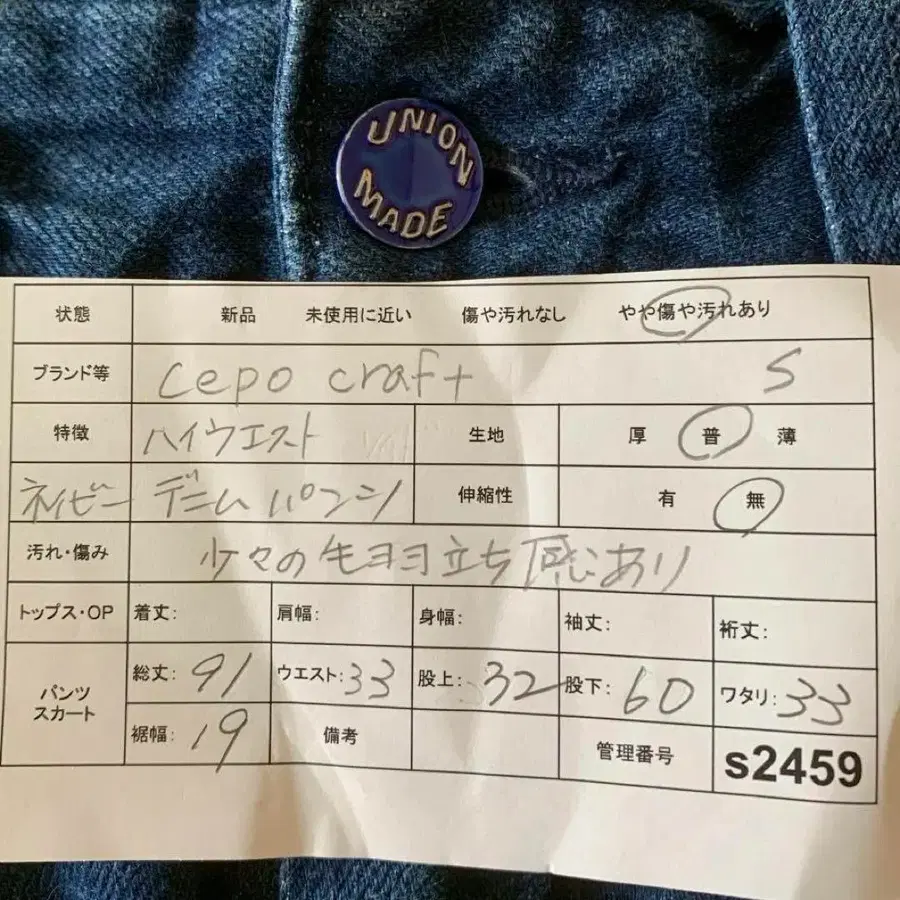 UNION
MADE
状態 新品 未使用に近い 傷や汚れなし やや傷や汚れあり
ブランド等 cepo craft S
特徴 ハイウエスト 生地 厚 普 薄
ネイビー デニムパンツ 伸縮性 有 無
汚れ・傷み 少々の毛羽立ち感あり
トップス・OP 着丈: 肩幅: 身幅: 袖丈: 裄丈:
パンツ スカート 総丈: 91 ウエスト: 33 股上: 32 股下: 60 ワタリ: 33
裾幅: 19 備考 管理番号 s2459